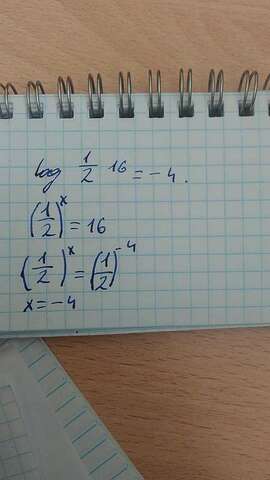 log 1/2 16 = -4.
(1/2)^x = 16
(1/2)^x = (1/2)^-4
x = -4